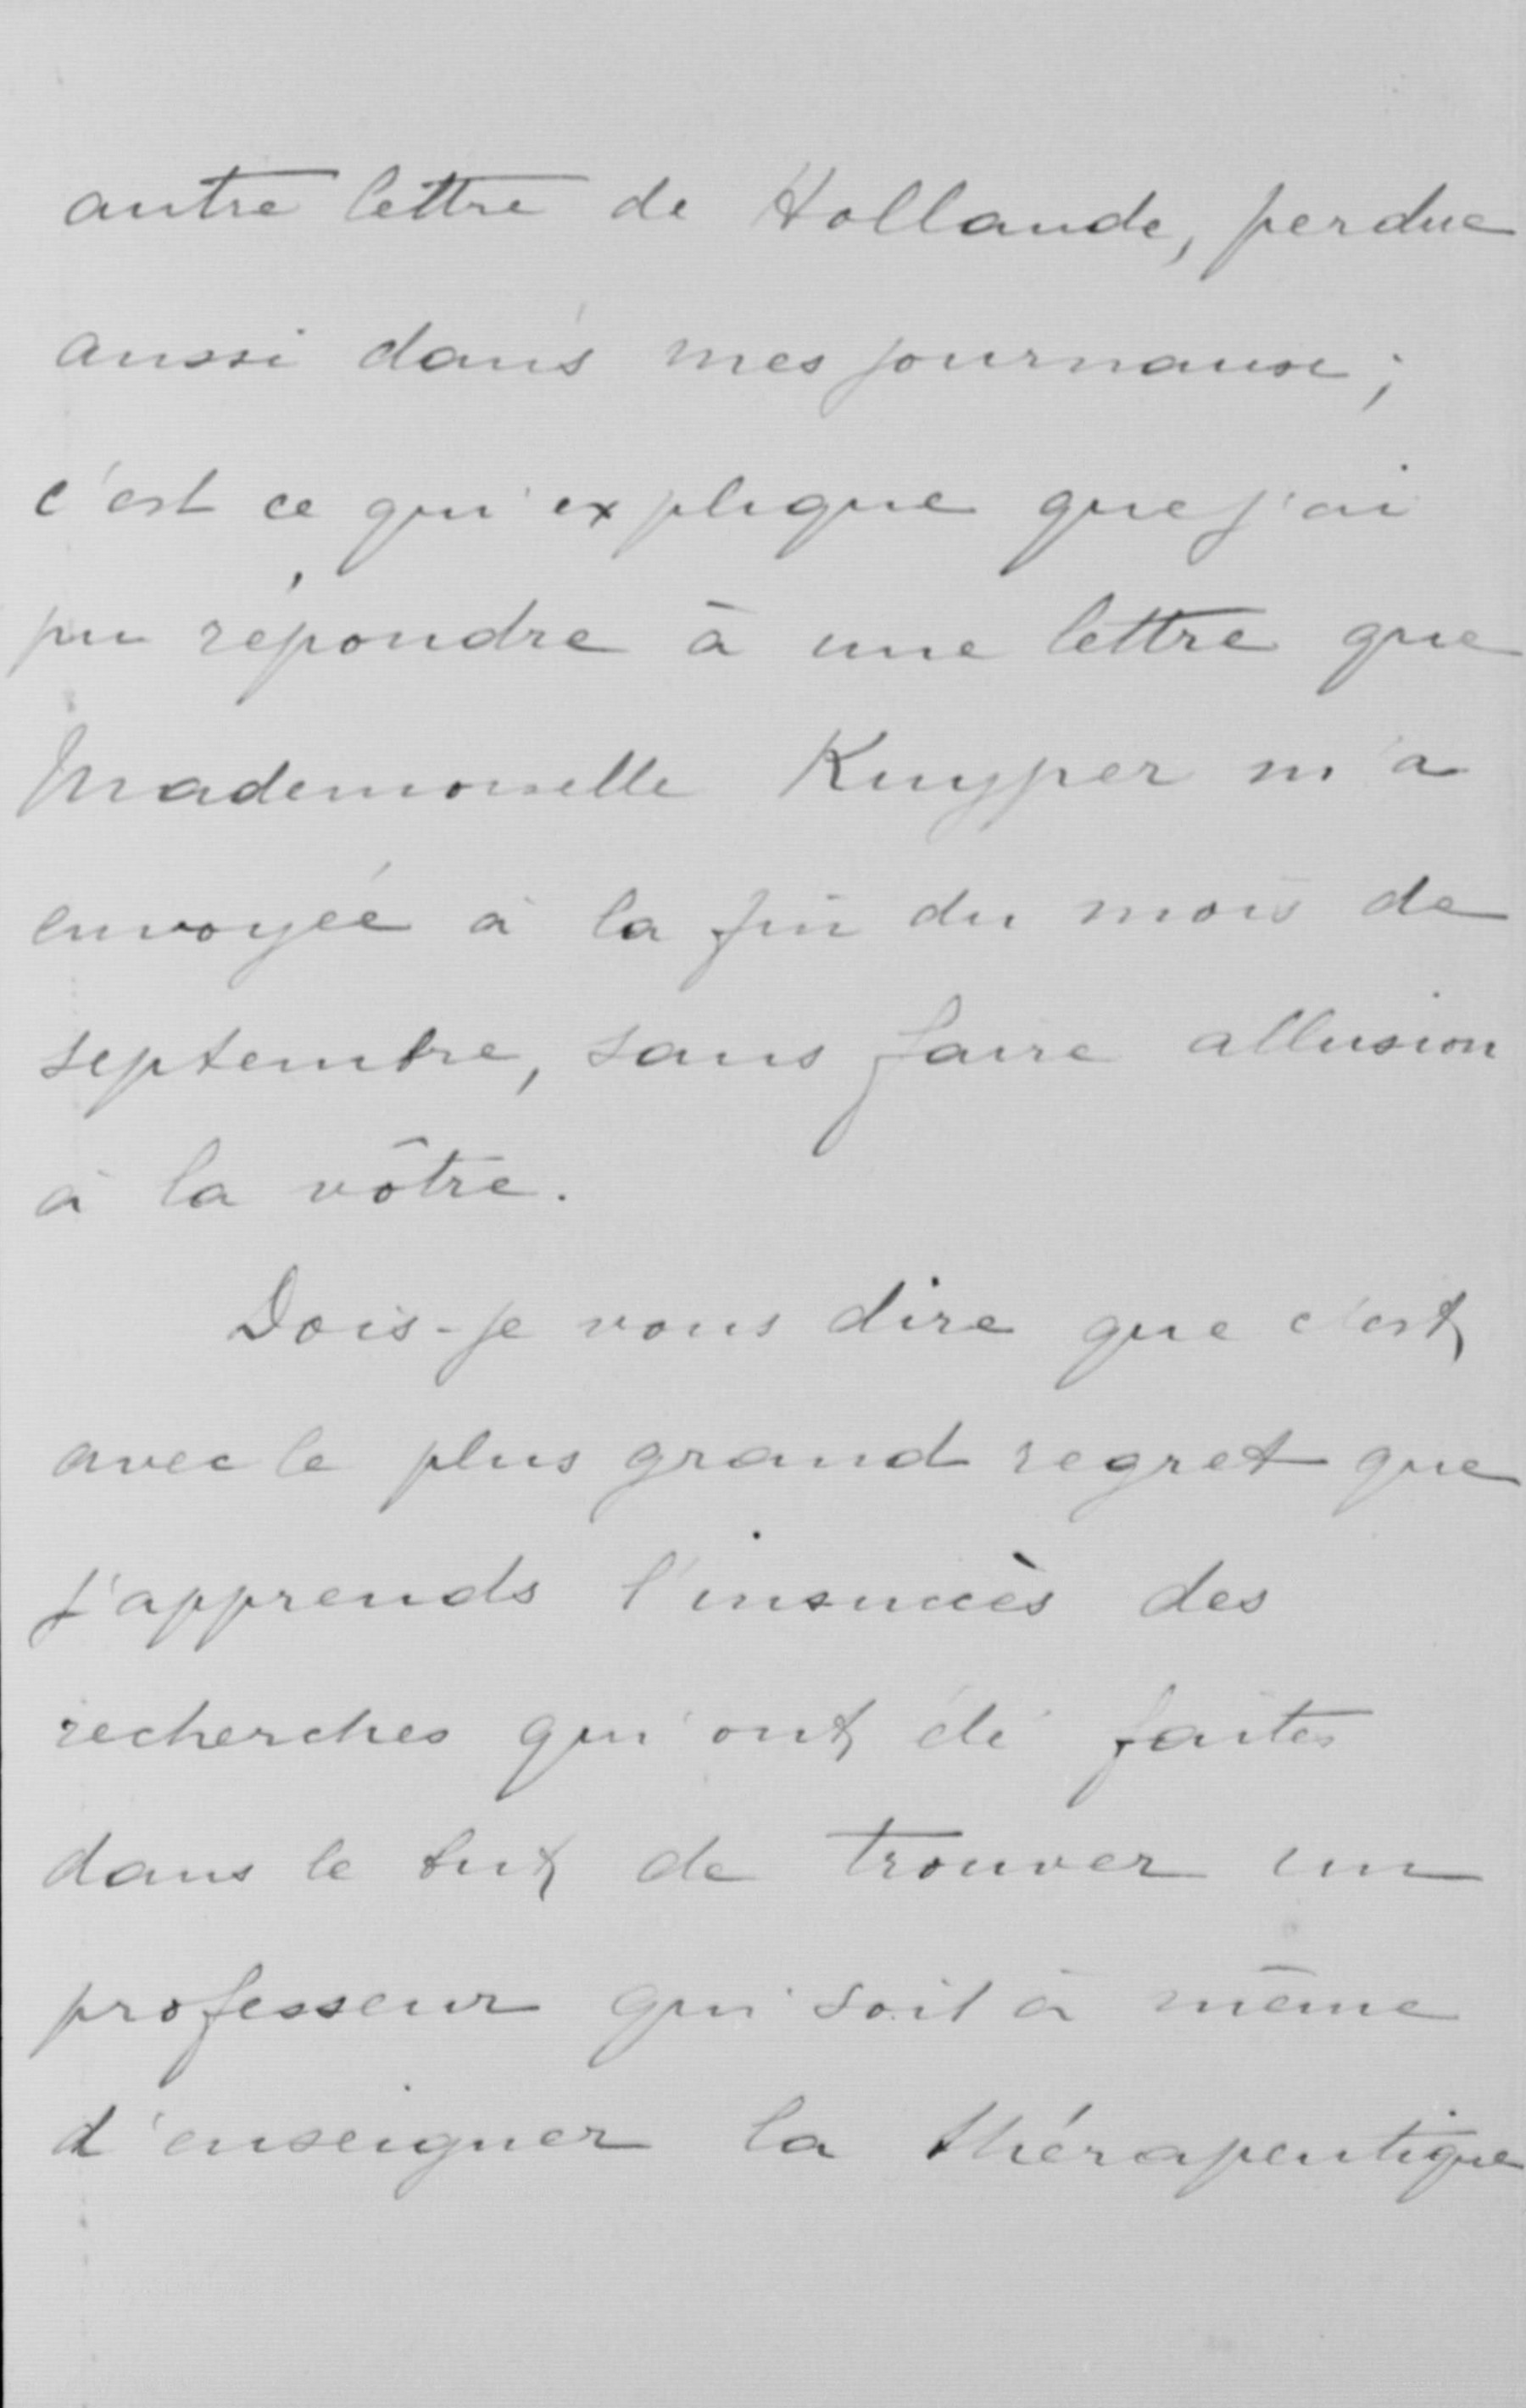 autre lettre de Hollande, perdue
aussi dans mes journaux ;
c'est ce qui explique que j'ai
pu répondre à une lettre que
Mademoiselle Kuyper m'a
envoyée à la fin du mois de
septembre, sans faire allusion
à la vôtre.
Dois-je vous dire que c'est
avec le plus grand regret que
j'apprends l'insuccès des
recherches qui ont été faites
dans le but de trouver un
professeur qui soit à même
d'enseigner la thérapeutique